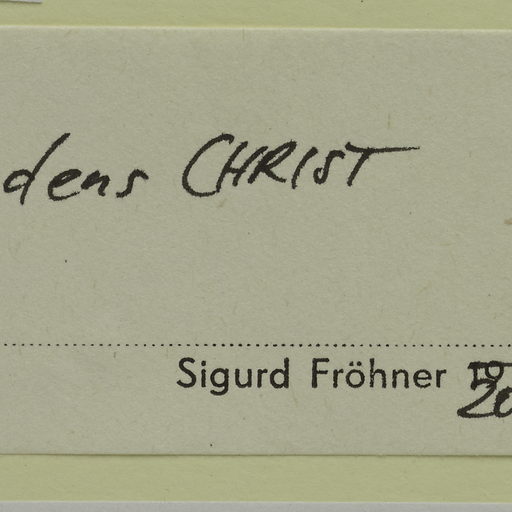 dens CHRIST
Sigurd Fröhner 20